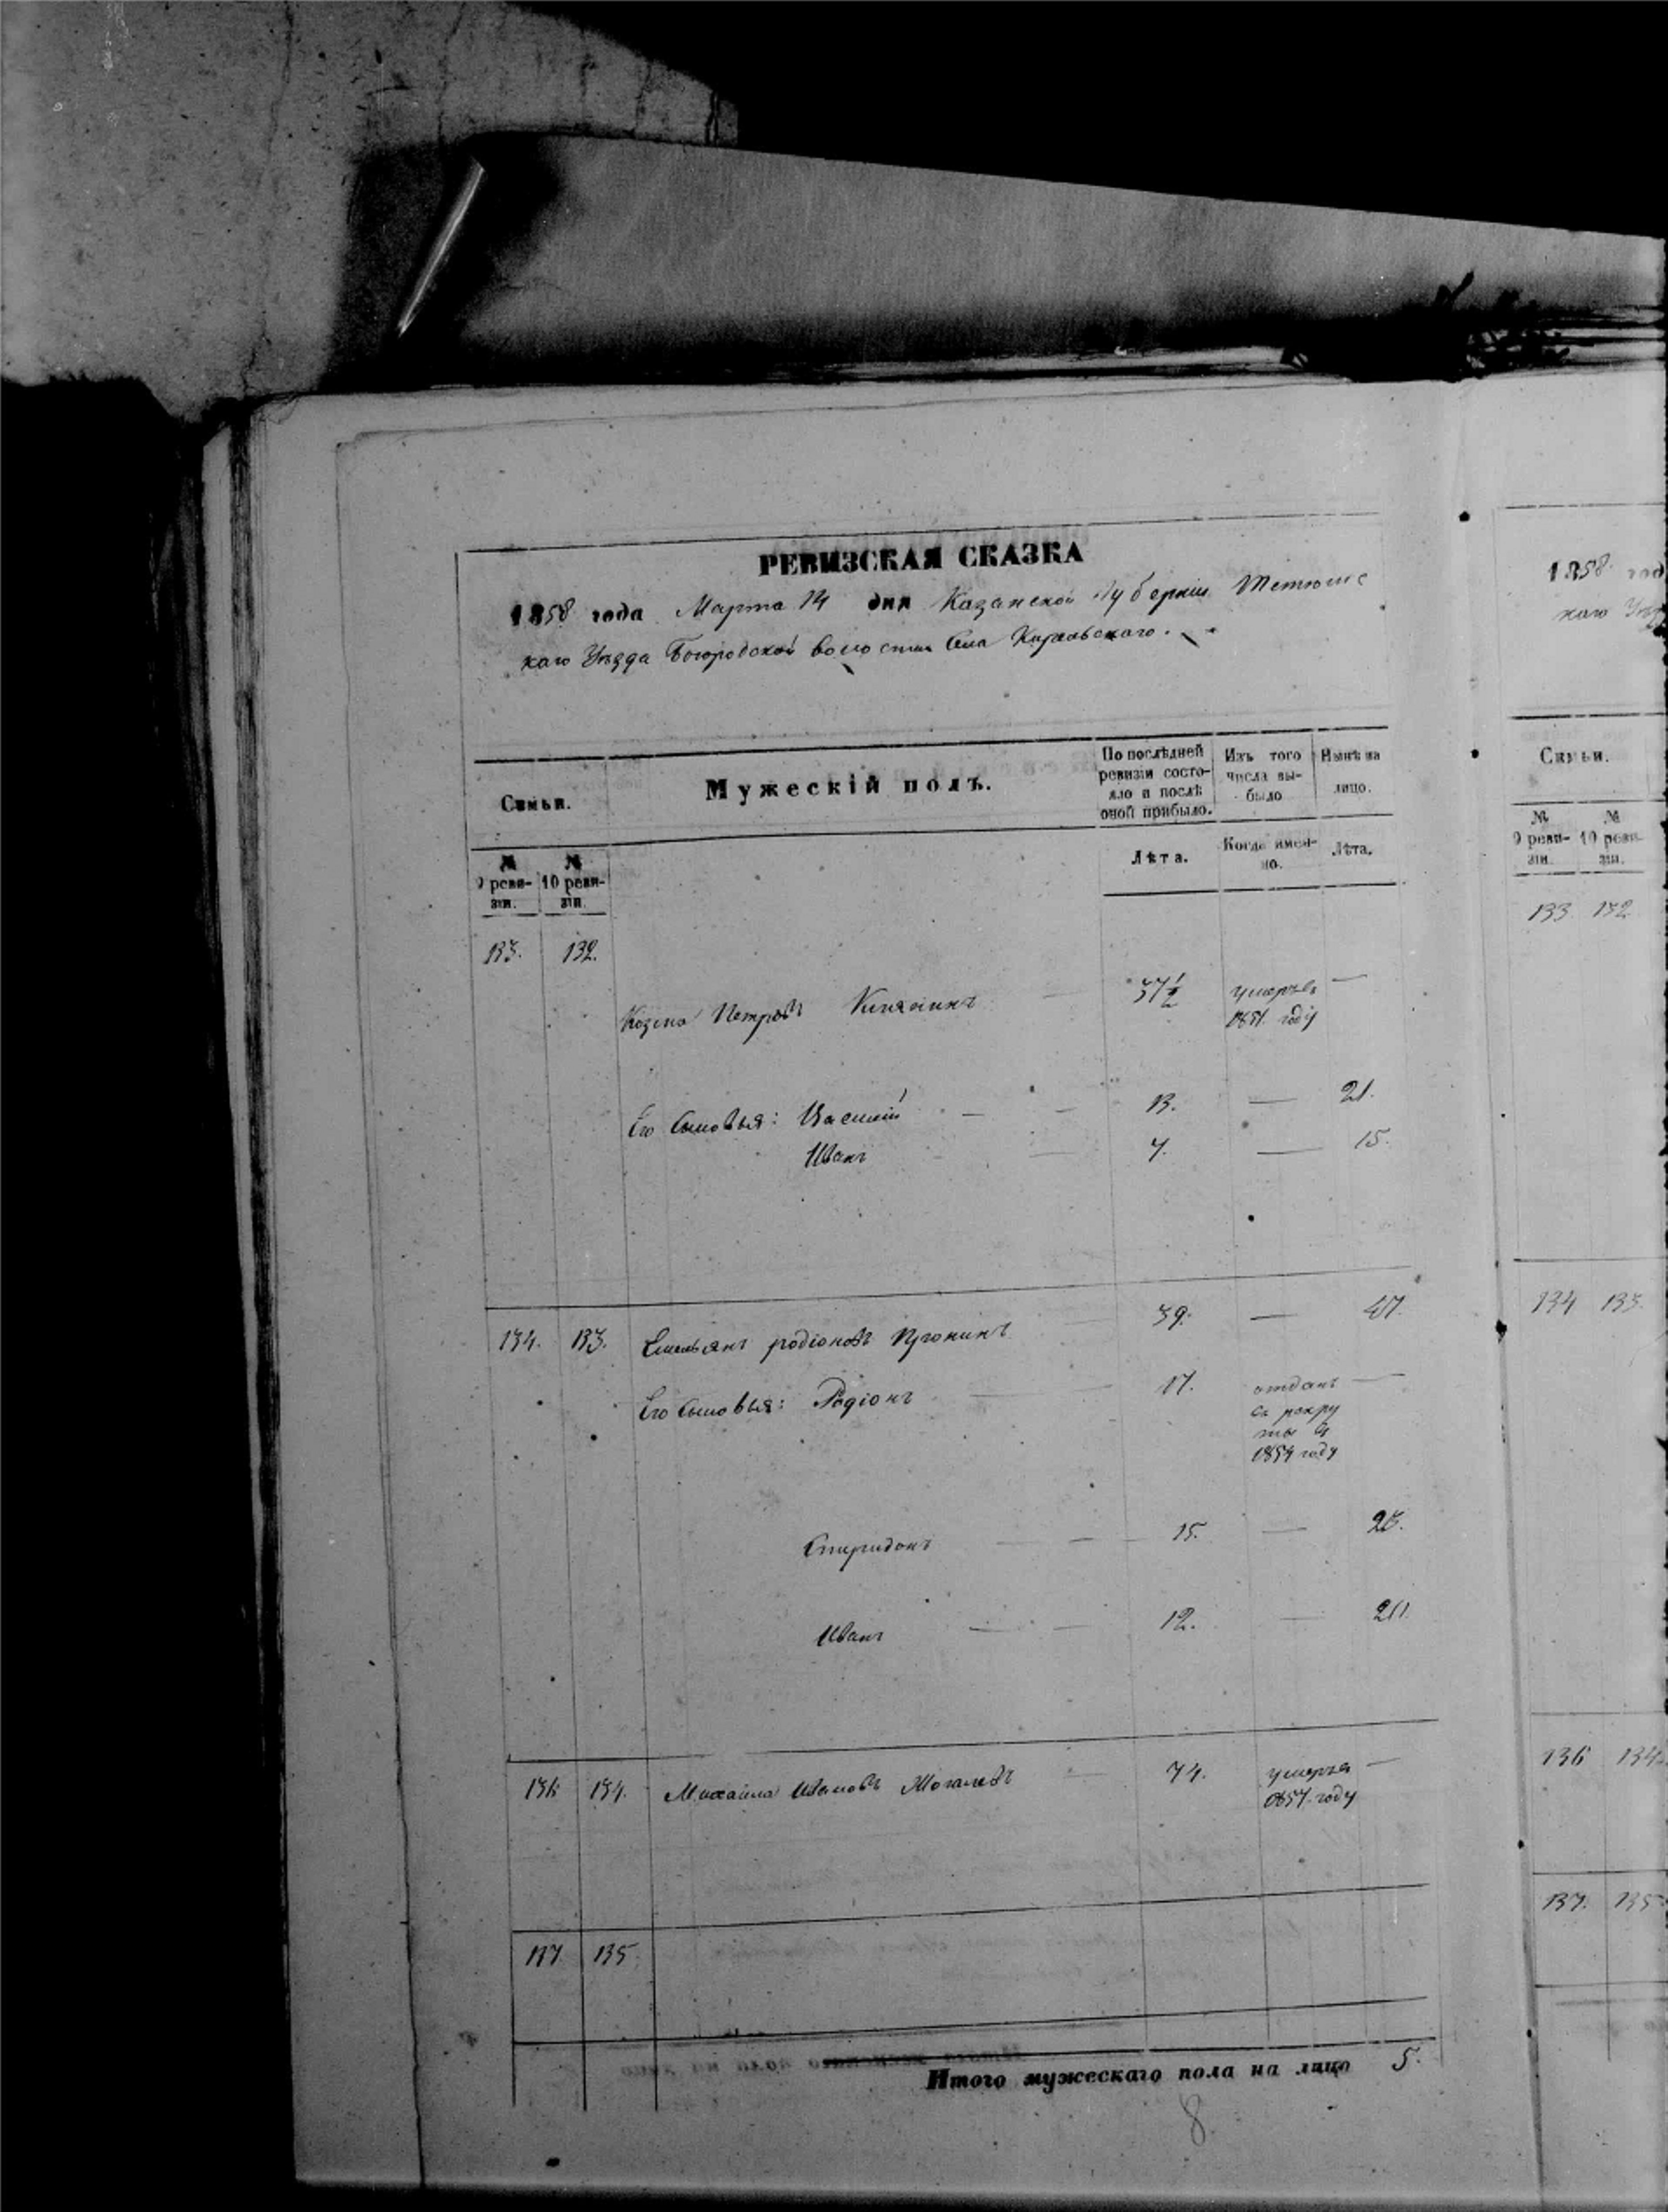 РЕВИЗСКАЯ СКАЗКА
1858 года Марта 14 дня Казанской Губерніи Тетюшс
каго Уѣзда Богородской волости Села
1858 год
каго
Семьи.
Мужескій полъ.
По послѣдней ревизіи состояло и послѣ оной прибыло.
Изъ того числа выбыло
Нынѣ на лицо.
Семьи.
№ 9 ревизіи.
№ 10 ревизіи.
Лѣта.
Когда именно.
Лѣта.
№ 9 ревизіи.
№ 10 ревизіи.
133. 132.
133 132
Козма Петровъ 37½ умеръ въ —
1851 году
Его сыновья: Василій — — 13. — 21.
Иванъ — 7. — 15.
134. 133. Емельянъ родіоновъ 39. — 47.
134 133.
Его сыновья: Родіонъ — 17. отданъ —
въ рекру
ты въ
1854 году
Спиридонъ — — 15. — 23.
Иванъ — — 12. — 20.
136 134. Михайла Ивановъ — 74. умеръ въ —
1857 году
136 134
137 135.
137. 135
Итого мужескаго пола на лицо 5.
8